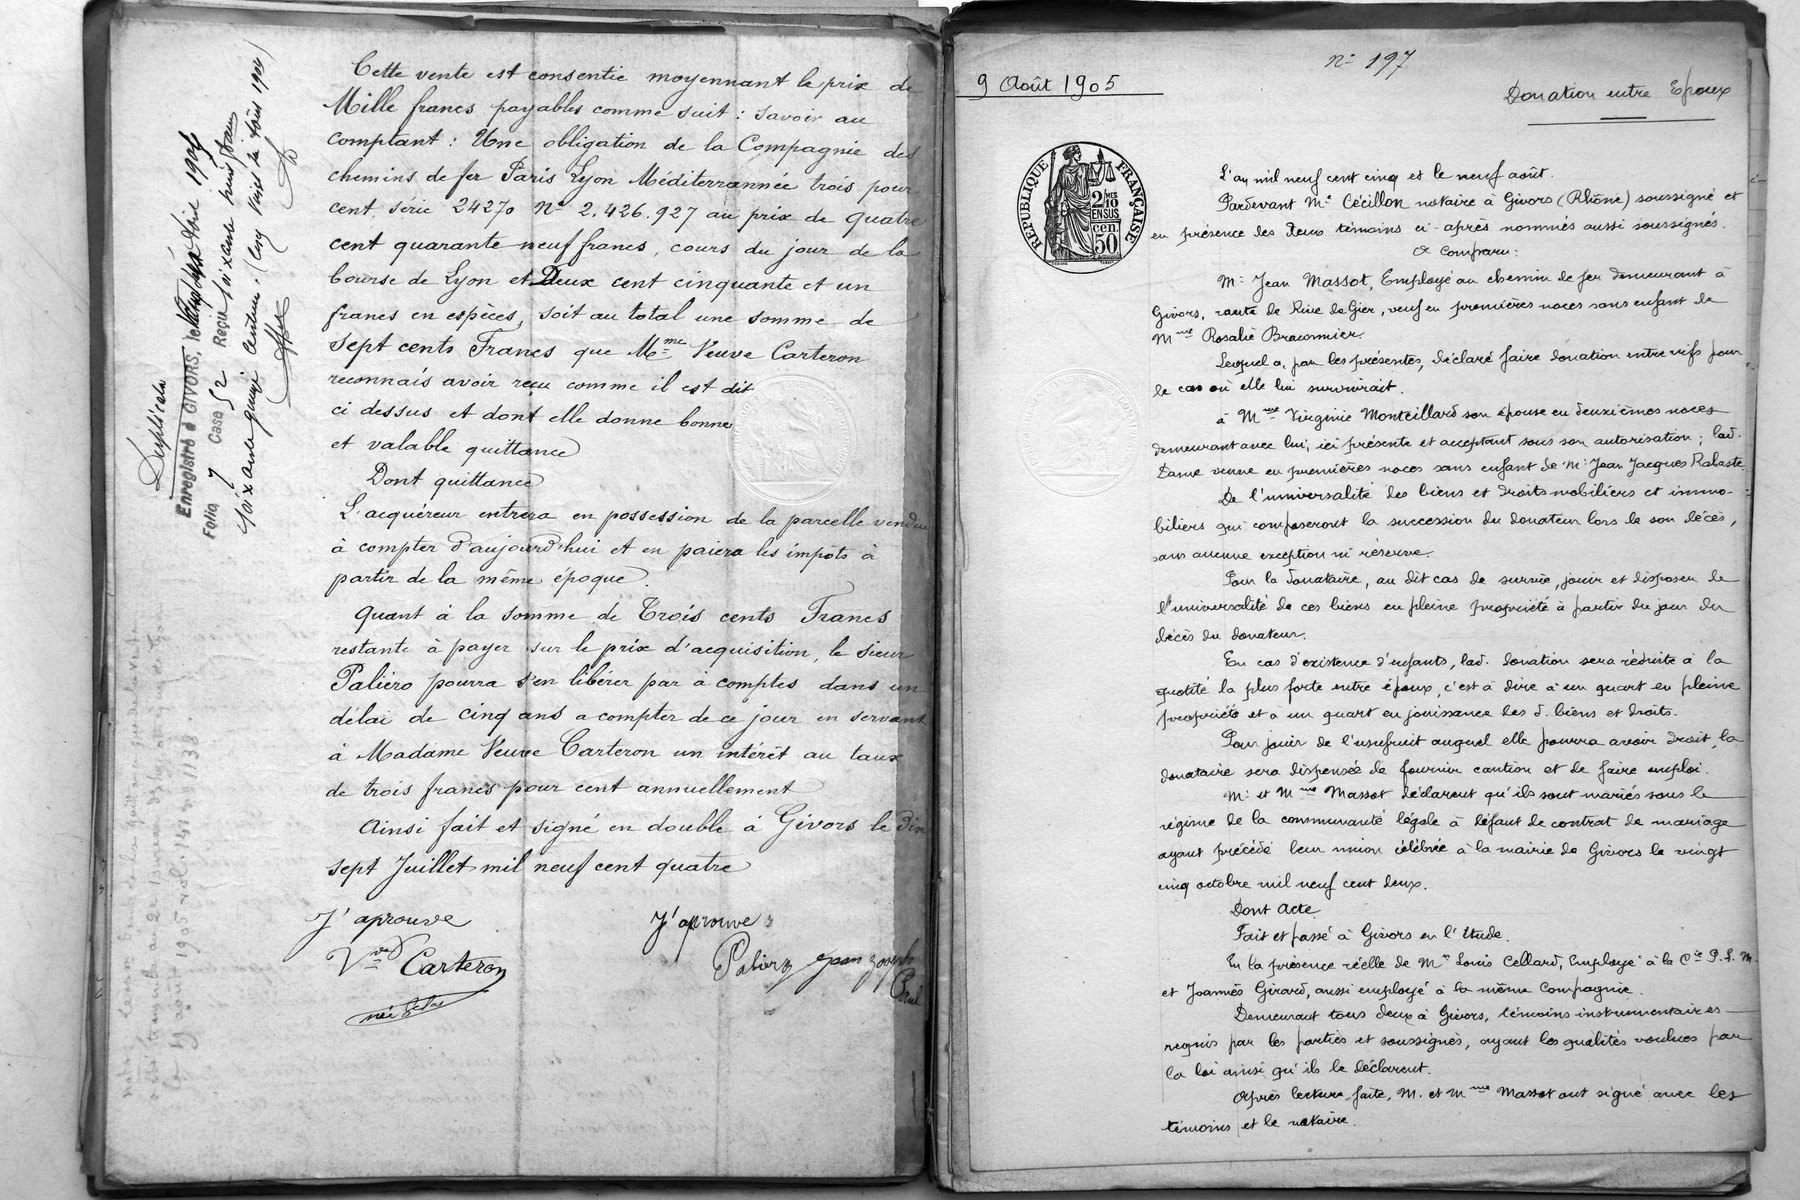 Cette vente est consentie moyennant le prix de
Mille francs payables comme suit : savoir au
comptant : Une obligation de la Compagnie des
chemins de fer Paris Lyon Méditerrannée trois pour
cent, série 24270 No 2.426.927 au prix de quatre
cent quarante neuf francs, cours du jour de la
bourse de Lyon et Deux cent cinquante et un
francs en espèces, soit au total une somme de
sept cents Francs que Mme Veuve Carteron
reconnais avoir reçu comme il est dit
ci dessus et dont elle donne bonne
et valable quittance
Dont quittance
L'acquéreur entrera en possession de la parcelle vendue
à compter d'aujourd'hui et en paiera les impôts à
partir de la même époque.
Quant à la somme de Trois cents Francs
restante à payer sur le prix d'acquisition, le sieur
Paliéro pourra s'en libérer par à comptes dans un
délai de cinq ans a compter de ce jour en servant
à Madame Veuve Carteron un intérêt au taux
de trois francs pour cent annuellement
Ainsi fait et signé en double à Givors le dix
sept Juillet mil neuf cent quatre
J'aprouve
J'aprouve
Vve Carteron
Duplicata
Enregistré à GIVORS, le 1904
Folio 7 Case 52 Reçu soixante
soixante quinze centimes
No 197
9 Août 1905
Donation entre Epoux
RÉPUBLIQUE FRANÇAISE
2/10
EN SUS
50 cen.
L'an mil neuf cent cinq et le neuf août.
Pardevant Me Cécillon notaire à Givors (Rhône) soussigné et
en présence des deux témoins ci-après nommés aussi soussignés.
A comparu :
Mr Jean Massot, Employé au chemin de fer demeurant à
Givors, route de Rive de Gier, veuf en premières noces sans enfant de
Mme Rosalie Braconnier.
Lequel a, par les présentes, déclaré faire donation entre vifs pour
le cas où elle lui survivrait.
à Mme Virginie Monteillard son épouse en deuxièmes noces
demeurant avec lui, ici présente et acceptant sous son autorisation ; lad.
Dame veuve en premières noces sans enfant de Mr Jean Jacques Rabaste.
De l'universalité des biens et droits mobiliers et immo-
biliers qui composeront la succession du donateur lors de son décès,
sans aucune exception ni réserve.
Pour la donataire, au dit cas de survie, jouir et disposer de
l'universalité de ces biens en pleine propriété à partir du jour du
décès du donateur.
En cas d'existence d'enfants, lad. donation sera réduite à la
quotité la plus forte entre époux, c'est à dire à un quart en pleine
propriété et à un quart en jouissance des d. biens et droits.
Pour jouir de l'usufruit auquel elle pourra avoir droit, la
donataire sera dispensée de fournir caution et de faire emploi.
Mr et Mme Massot déclarent qu'ils sont mariés sous le
régime de la communauté légale à défaut de contrat de mariage
ayant précédé leur union célébrée à la mairie de Givors le vingt
cinq octobre mil neuf cent deux.
Dont Acte
Fait et passé à Givors en l'Etude.
En la présence réelle de Mrs Louis Cellard, Employé à la Cie P. L. M.
et Joannès Girard, aussi employé à la même Compagnie.
Demeurant tous deux à Givors, témoins instrumentaires
requis par les parties et soussignés, ayant les qualités voulues par
la loi ainsi qu'ils le déclarent.
Après lecture faite, M. et Mme Massot ont signé avec les
témoins et le notaire.